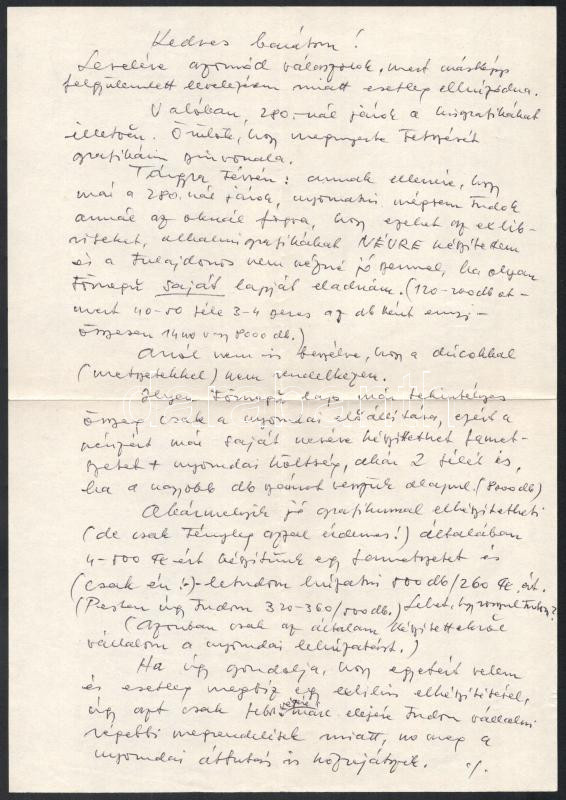 Kedves barátom!
Levelére azonnal válaszolok, mert másképp
felgyülemlett levelezésem miatt esetleg elhúzódna.
Valóban, 280.-nál járok a kisgrafikákat
illetően. Örülök, hogy megnyerte tetszését
grafikáim színvonala.
Tárgyra térvén: annak ellenére, hogy
már a 280.nál járok, nyomatni mégsem tudok
annál az oknál fogva, hogy ezeket az exlib-
riseket, alkalmigrafikákat NÉVRE készítettem
és a tulajdonos nem nézné jó szemmel, ha olyan
tömegű saját lapját eladnám. (120-200db
mert 40-50 féle 3-4 szeres az db ként
összesen 8000 db.)
Arról nem is beszélve, hogy a dúcokkal
(metszetekkel) nem rendelkezem.
Ilyen tömegű lap már tekintélyes
összeg csak a nyomdai előállítása, ezért a
pénzért már saját nevére készíttethet famet-
szetet + nyomdai költség, akár 2 félét is,
ha a nagyobb db számot vesszük alapul. (8000 db)
Akármelyik jó grafikussal elkészíttetheti
(de csak tényleg azzal érdemes!) általában
4-500 Ft-ért készítünk egy fametszetet és
(csak én is)-letudom húzatni 500 db/260 Ft.ért.
(Pesten úgy tudom 320-360/500 db.) Lehet, hogy rosszul tudom?
(Azonban csak az általam készítettekről
vállalom a nyomdai lehúzatást.)
Ha úgy gondolja, hogy egyetért velem
és esetleg megbíz egy exlibris elkészítésével,
úgy azt csak febr. végére márc. elejére tudom vállalni
régebbi megrendelések miatt, no meg a
nyomdai átfutás is közrejátszik. ·/.
darabanth